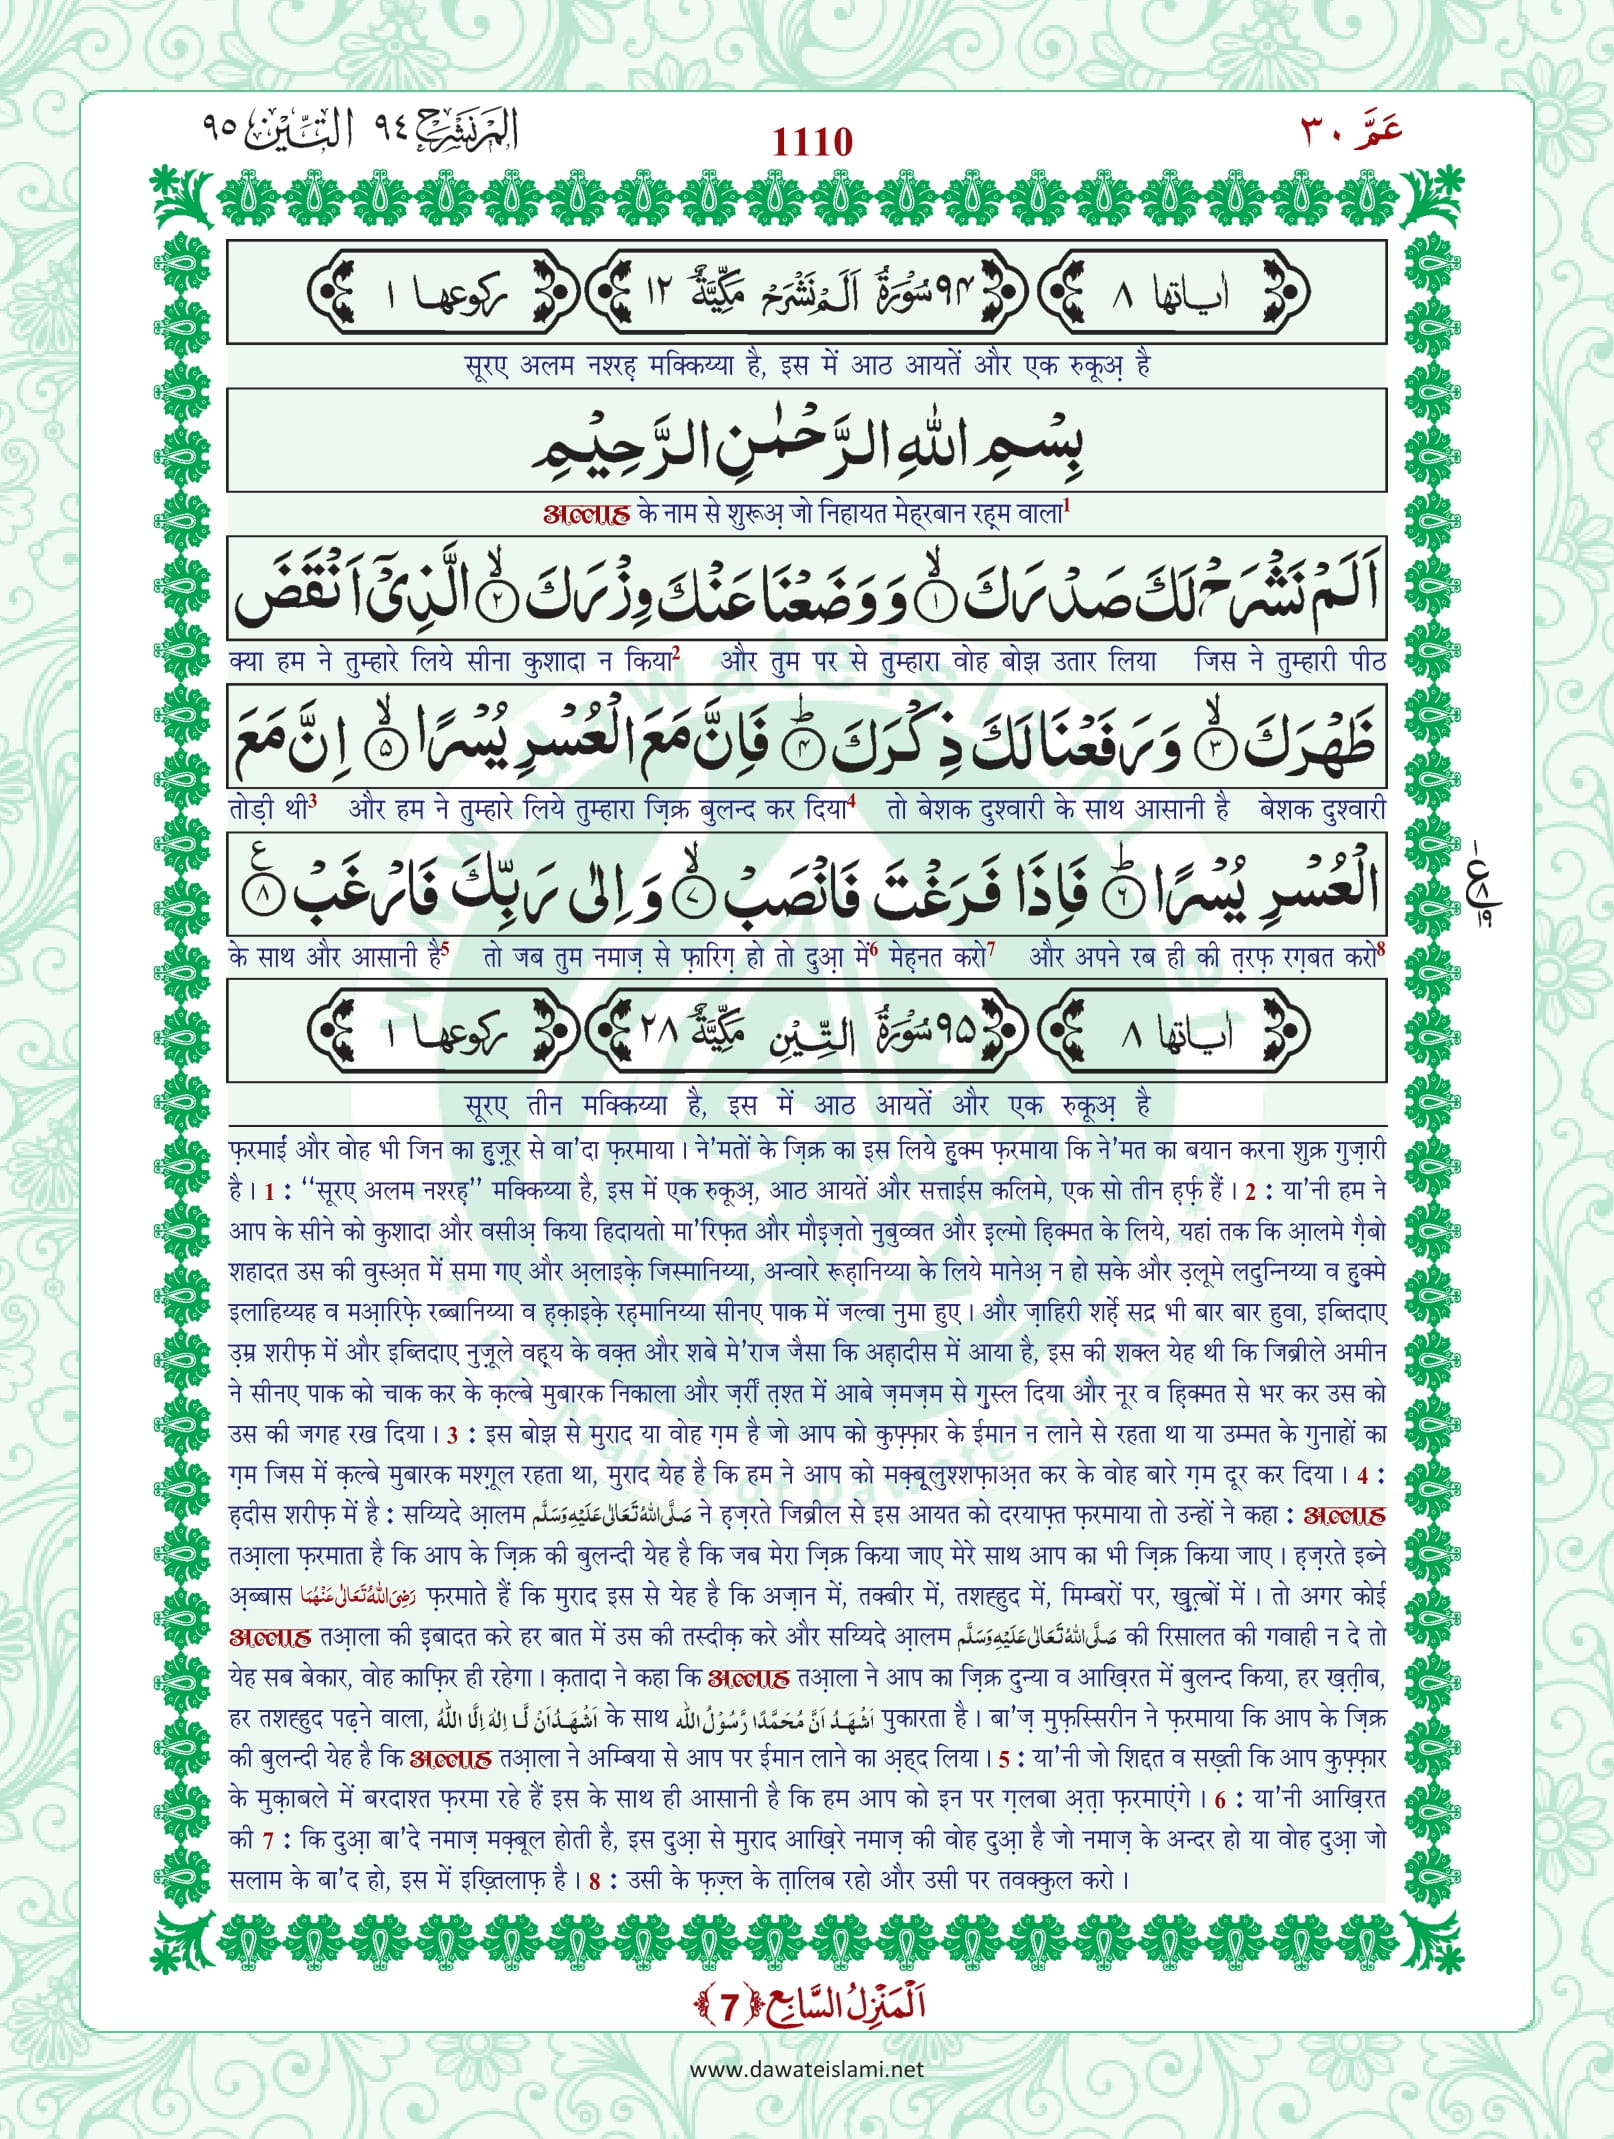 عَمَّ ٣٠
1110
اَلَمْ نَشْرَحْ ٩٤ اَلتِّيْن ٩٥
اٰیاتها ٨ ٩٤ سُوْرَةُ اَلَمْ نَشْرَحْ مَكِّيَّةٌ ١٢ رکوعها ١
सूरए अलम नश्रह़ मक्किय्या है, इस में आठ आयतें और एक रुकूअ़ है
بِسْمِ اللّٰهِ الرَّحْمٰنِ الرَّحِيْمِ
अल्लाह के नाम से शुरूअ़ जो निहायत मेह़रबान रह़्म वाला1
اَلَمْ نَشْرَحْ لَكَ صَدْرَكَ ۙ۝١ وَ وَضَعْنَا عَنْكَ وِزْرَكَ ۙ۝٢ الَّذِيْۤ اَنْقَضَ
क्या हम ने तुम्हारे लिये सीना कुशादा न किया2 और तुम पर से तुम्हारा वोह बोझ उतार लिया जिस ने तुम्हारी पीठ
ظَهْرَكَ ۙ۝٣ وَ رَفَعْنَا لَكَ ذِكْرَكَ ؕ۝٤ فَاِنَّ مَعَ الْعُسْرِ يُسْرًا ۙ۝٥ اِنَّ مَعَ
तोड़ी थी3 और हम ने तुम्हारे लिये तुम्हारा ज़िक्र बुलन्द कर दिया4 तो बेशक दुश्वारी के साथ आसानी है बेशक दुश्वारी
الْعُسْرِ يُسْرًا ؕ۝٦ فَاِذَا فَرَغْتَ فَانْصَبْ ۙ۝٧ وَ اِلٰى رَبِّكَ فَارْغَبْ ۝٨ ع
ع ١ ٨ ١٩
के साथ और आसानी है5 तो जब तुम नमाज़ से फ़ारिग़ हो तो दुआ़ में6 मेह़नत करो7 और अपने रब ही की त़रफ़ रग़बत करो8
اٰیاتها ٨ ٩٥ سُوْرَةُ التِّيْنِ مَكِّيَّةٌ ٢٨ رکوعها ١
सूरए तीन मक्किय्या है, इस में आठ आयतें और एक रुकूअ़ है
फ़रमाईं और वोह भी जिन का हु़ज़ूर से वा'दा फ़रमाया। ने'मतों के ज़िक्र का इस लिये हु़क्म फ़रमाया कि ने'मत का बयान करना शुक्र गुज़ारी
है। 1 : ‘‘सूरए अलम नश्रह़’’ मक्किय्या है, इस में एक रुकूअ़, आठ आयतें और सत्ताईस कलिमे, एक सो तीन ह़र्फ़ हैं। 2 : या'नी हम ने
आप के सीने को कुशादा और वसीअ़ किया हिदायतो मा'रिफ़त और मौइज़तो नुबुव्वत और इ़ल्मो हि़क्मत के लिये, यहां तक कि आ़लमे ग़ैबो
शहादत उस की वुस्अ़त में समा गए और अ़लाइके़ जिस्मानिय्या, अन्वारे रूह़ानिय्या के लिये मानेअ़ न हो सके और उ़लूमे लदुन्निय्या व हु़क्मे
इलाहिय्यह व मआ़रिफ़े रब्बानिय्या व ह़क़ाइक़े रह़मानिय्या सीनए पाक में जल्वा नुमा हुए। और ज़ाहिरी शर्ह़े सद्र भी बार बार हुवा, इब्तिदाए
उ़म्र शरीफ़ में और इब्तिदाए नुज़ूले वह़्य के वक़्त और शबे मे'राज जैसा कि अह़ादीस में आया है, इस की शक्ल येह थी कि जिब्रीले अमीन
ने सीनए पाक को चाक कर के क़ल्बे मुबारक निकाला और ज़र्रीं त़श्त में आबे ज़मज़म से ग़ुस्ल दिया और नूर व हि़क्मत से भर कर उस को
उस की जगह रख दिया। 3 : इस बोझ से मुराद या वोह ग़म है जो आप को कुफ़्फ़ार के ईमान न लाने से रहता था या उम्मत के गुनाहों का
ग़म जिस में क़ल्बे मुबारक मश्ग़ूल रहता था, मुराद येह है कि हम ने आप को मक़्बूलुश्शफ़ाअ़त कर के वोह बारे ग़म दूर कर दिया। 4 :
ह़दीस शरीफ़ में है : सय्यिदे आ़लम صَلَّى اللّٰهُ تَعَالٰى عَلَيْهِ وَسَلَّم ने ह़ज़रते जिब्रील से इस आयत को दरयाफ़्त फ़रमाया तो उन्हों ने कहा : अल्लाह
तआ़ला फ़रमाता है कि आप के ज़िक्र की बुलन्दी येह है कि जब मेरा ज़िक्र किया जाए मेरे साथ आप का भी ज़िक्र किया जाए। ह़ज़रते इब्ने
अ़ब्बास رَضِيَ اللّٰهُ تَعَالٰى عَنْهُمَا फ़रमाते हैं कि मुराद इस से येह है कि अज़ान में, तक्बीर में, तशह्हुद में, मिम्बरों पर, ख़ुत़्बों में। तो अगर कोई
अल्लाह तआ़ला की इ़बादत करे हर बात में उस की तस्दीक़ करे और सय्यिदे आ़लम صَلَّى اللّٰهُ تَعَالٰى عَلَيْهِ وَسَلَّم की रिसालत की गवाही न दे तो
येह सब बेकार, वोह काफ़िर ही रहेगा। क़तादा ने कहा कि अल्लाह तआ़ला ने आप का ज़िक्र दुन्या व आख़िरत में बुलन्द किया, हर ख़त़ीब,
हर तशह्हुद पढ़ने वाला, اَشْهَدُ اَنْ لَّا اِلٰهَ اِلَّا اللّٰهُ के साथ اَشْهَدُ اَنَّ مُحَمَّدًا رَّسُوْلُ اللّٰه पुकारता है। बा'ज़ मुफ़स्सिरीन ने फ़रमाया कि आप के ज़िक्र
की बुलन्दी येह है कि अल्लाह तआ़ला ने अम्बिया से आप पर ईमान लाने का अ़ह्द लिया। 5 : या'नी जो शिद्दत व सख़्ती कि आप कुफ़्फ़ार
के मुक़ाबले में बरदाश्त फ़रमा रहे हैं इस के साथ ही आसानी है कि हम आप को इन पर ग़लबा अ़त़ा फ़रमाएंगे। 6 : या'नी आख़िरत
की 7 : कि दुआ़ बा'दे नमाज़ मक़्बूल होती है, इस दुआ़ से मुराद आख़िरे नमाज़ की वोह दुआ़ है जो नमाज़ के अन्दर हो या वोह दुआ़ जो
सलाम के बा'द हो, इस में इख़्तिलाफ़ है। 8 : उसी के फ़ज़्ल के त़ालिब रहो और उसी पर तवक्कुल करो।
اَلْمَنْزِلُ السَّابِع ﴿7﴾
www.dawateislami.net